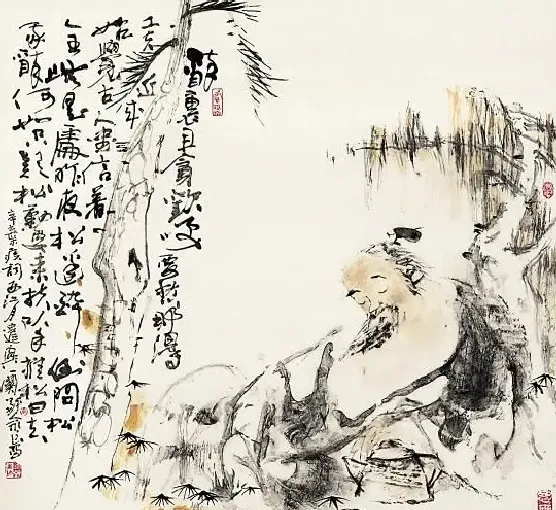 醉裏且貪歡笑要愁那得
工夫近來
始覺古人書信著
全無是處昨夜松邊醉倒問松
我醉何如只疑松動要來扶以手推松曰去
辛棄疾詞西江月遣興一闋